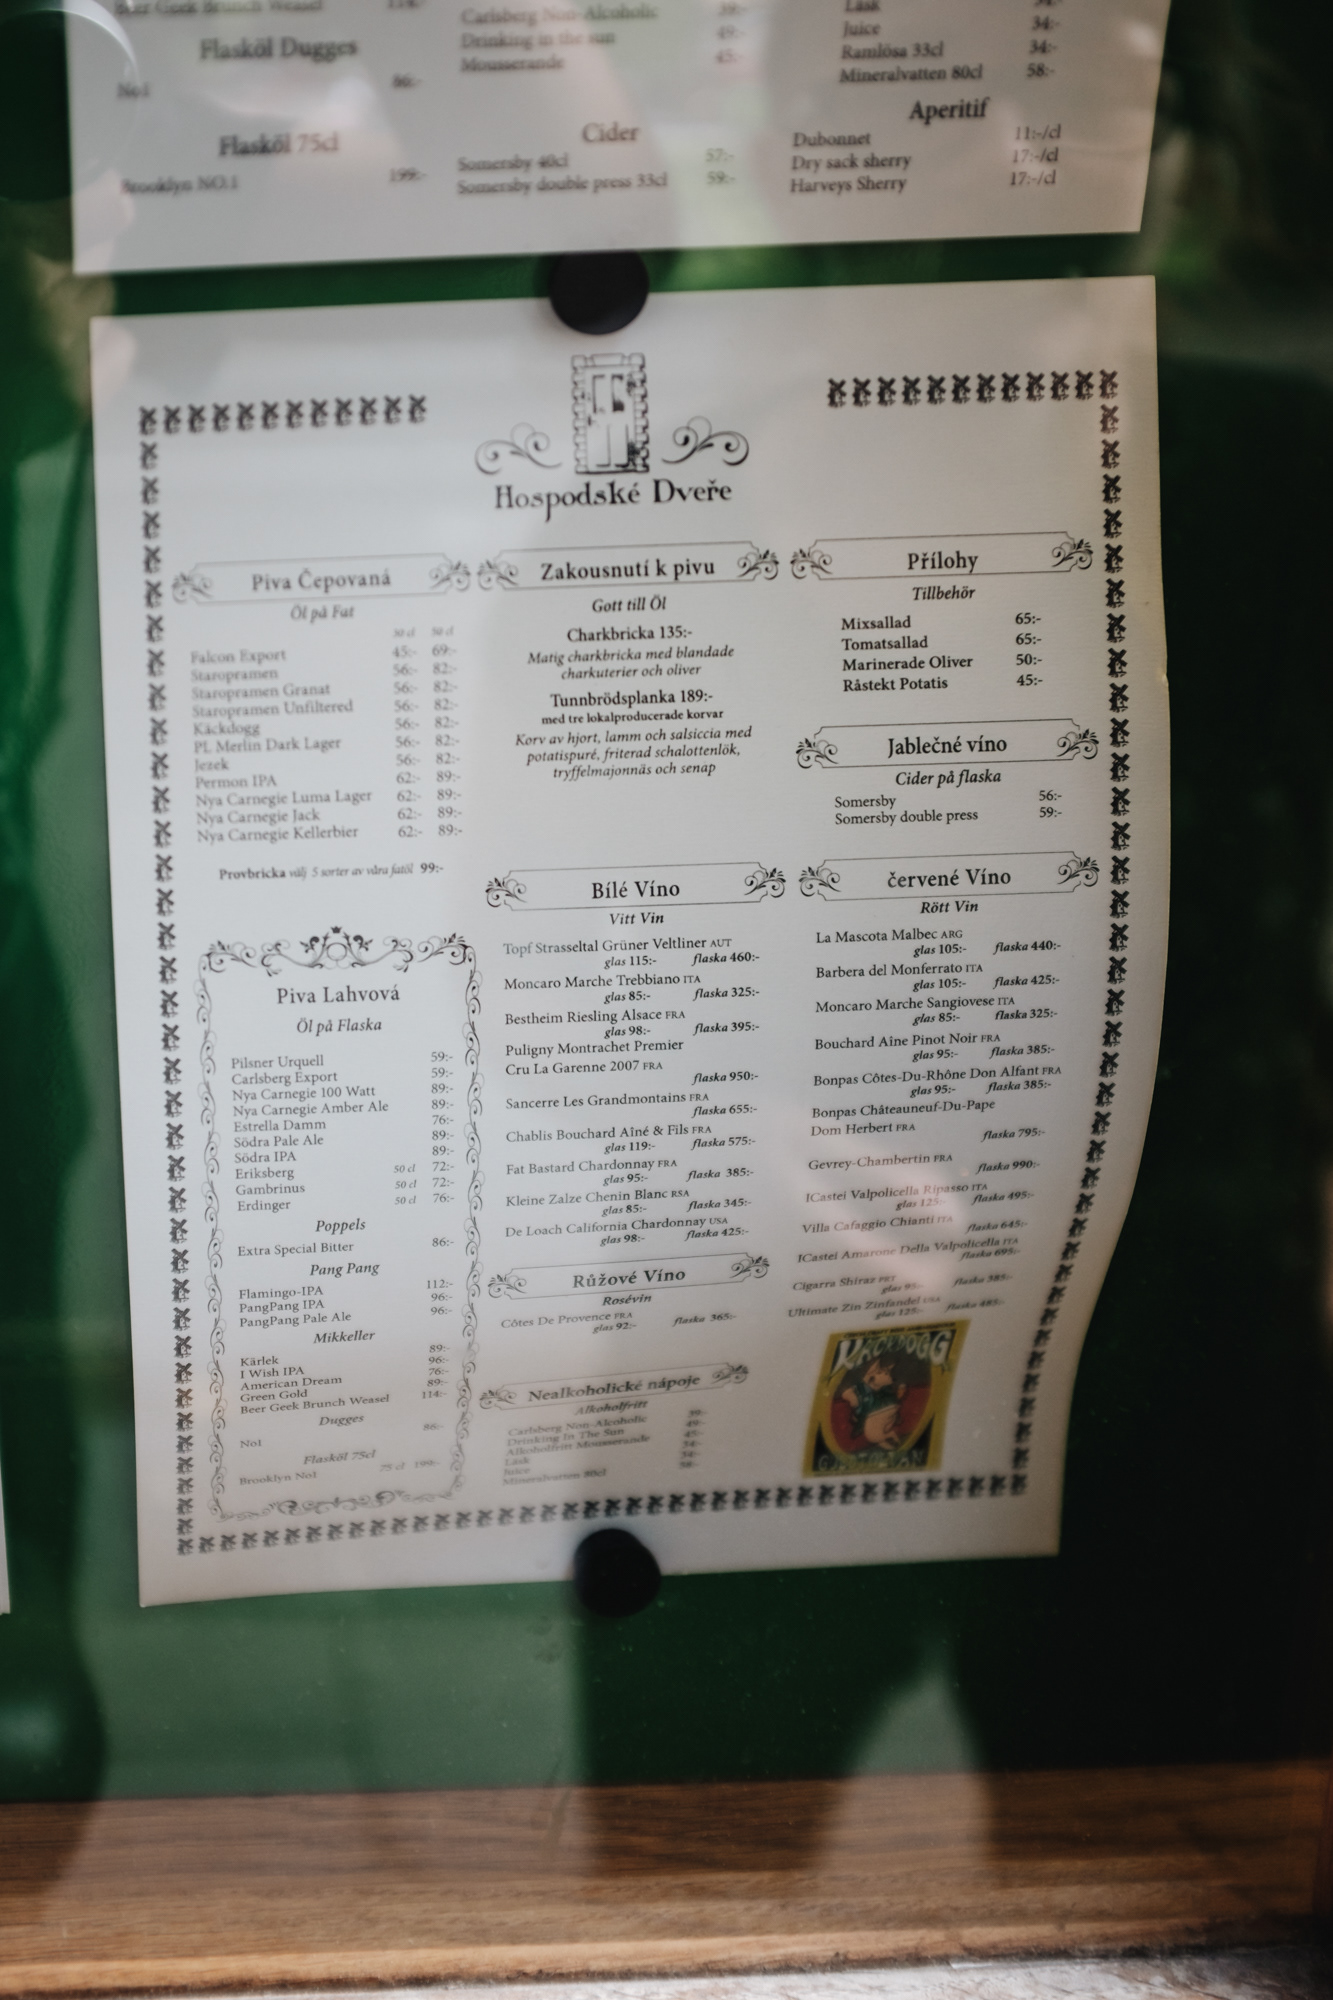 Beer Geek Brunch Weasel 114:-
Flasköl Dugges
No1 86:-
Flasköl 75cl
Brooklyn NO.1 199:-
Carlsberg Non-Alcoholic 39:-
Drinking in the sun 49:-
Mousserande 45:-
Cider
Somersby 40cl 57:-
Somersby double press 33cl 59:-
Läsk
Juice 34:-
Ramlösa 33cl 34:-
Mineralvatten 80cl 58:-
Aperitif
Dubonnet 11:-/cl
Dry sack sherry 17:-/cl
Harveys Sherry 17:-/cl
Hospodské Dveře
Piva Čepovaná
Öl på Fat
50 cl
Falcon Export 45:- 69:-
Staropramen 56:- 82:-
Staropramen Granat 56:- 82:-
Staropramen Unfiltered 56:- 82:-
Käckdogg 56:- 82:-
PL Merlin Dark Lager 56:- 82:-
Jezek 56:- 82:-
Permon IPA 62:- 89:-
Nya Carnegie Luma Lager 62:- 89:-
Nya Carnegie Jack 62:- 89:-
Nya Carnegie Kellerbier 62:- 89:-
Provbricka välj 5 sorter av våra fatöl 99:-
Piva Lahvová
Öl på Flaska
Pilsner Urquell 59:-
Carlsberg Export 59:-
Nya Carnegie 100 Watt 89:-
Nya Carnegie Amber Ale 89:-
Estrella Damm 76:-
Södra Pale Ale 89:-
Södra IPA 89:-
Eriksberg 50 cl 72:-
Gambrinus 50 cl 72:-
Erdinger 50 cl 76:-
Poppels
Extra Special Bitter 86:-
Pang Pang
Flamingo-IPA 112:-
PangPang IPA 96:-
PangPang Pale Ale 96:-
Mikkeller
Kärlek 89:-
I Wish IPA 96:-
American Dream 76:-
Green Gold 89:-
Beer Geek Brunch Weasel 114:-
Dugges
No1 86:-
Flasköl 75cl
Brooklyn No1 75 cl 199:-
Zakousnutí k pivu
Gott till Öl
Charkbricka 135:-
Matig charkbricka med blandade
charkuterier och oliver
Tunnbrödsplanka 189:-
med tre lokalproducerade korvar
Korv av hjort, lamm och salsiccia med
potatispuré, friterad schalottenlök,
tryffelmajonnäs och senap
Přílohy
Tillbehör
Mixsallad 65:-
Tomatsallad 65:-
Marinerade Oliver 50:-
Råstekt Potatis 45:-
Jablečné víno
Cider på flaska
Somersby 56:-
Somersby double press 59:-
Bílé Víno
Vitt Vin
Topf Strasseltal Grüner Veltliner AUT
glas 115:- flaska 460:-
Moncaro Marche Trebbiano ITA
glas 85:- flaska 325:-
Bestheim Riesling Alsace FRA
glas 98:- flaska 395:-
Puligny Montrachet Premier
Cru La Garenne 2007 FRA
flaska 950:-
Sancerre Les Grandmontains FRA
flaska 655:-
Chablis Bouchard Aîné & Fils FRA
glas 119:- flaska 575:-
Fat Bastard Chardonnay FRA
glas 95:- flaska 385:-
Kleine Zalze Chenin Blanc RSA
glas 85:- flaska 345:-
De Loach California Chardonnay USA
glas 98:- flaska 425:-
Růžové Víno
Rosévin
Côtes De Provence FRA
glas 92:- flaska 365:-
Nealkoholické nápoje
Alkoholfritt
Carlsberg Non-Alcoholic 39:-
Drinking In The Sun 49:-
Alkoholfritt Mousserande 45:-
Läsk 34:-
Juice 34:-
Mineralvatten 80cl 58:-
červené Víno
Rött Vin
La Mascota Malbec ARG
glas 105:- flaska 440:-
Barbera del Monferrato ITA
glas 105:- flaska 425:-
Moncaro Marche Sangiovese ITA
glas 85:- flaska 325:-
Bouchard Aîne Pinot Noir FRA
glas 95:- flaska 385:-
Bonpas Côtes-Du-Rhône Don Alfant FRA
glas 95:- flaska 385:-
Bonpas Châteauneuf-Du-Pape
Dom Herbert FRA
flaska 795:-
Gevrey-Chambertin FRA
flaska 990:-
ICastei Valpolicella Ripasso ITA
glas 125:- flaska 495:-
Villa Cafaggio Chianti ITA
flaska 645:-
ICastei Amarone Della Valpolicella ITA
flaska 695:-
Cigarra Shiraz PRT
glas 95:- flaska 385:-
Ultimate Zin Zinfandel USA
glas 125:- flaska 485:-
KÄCKDOGG